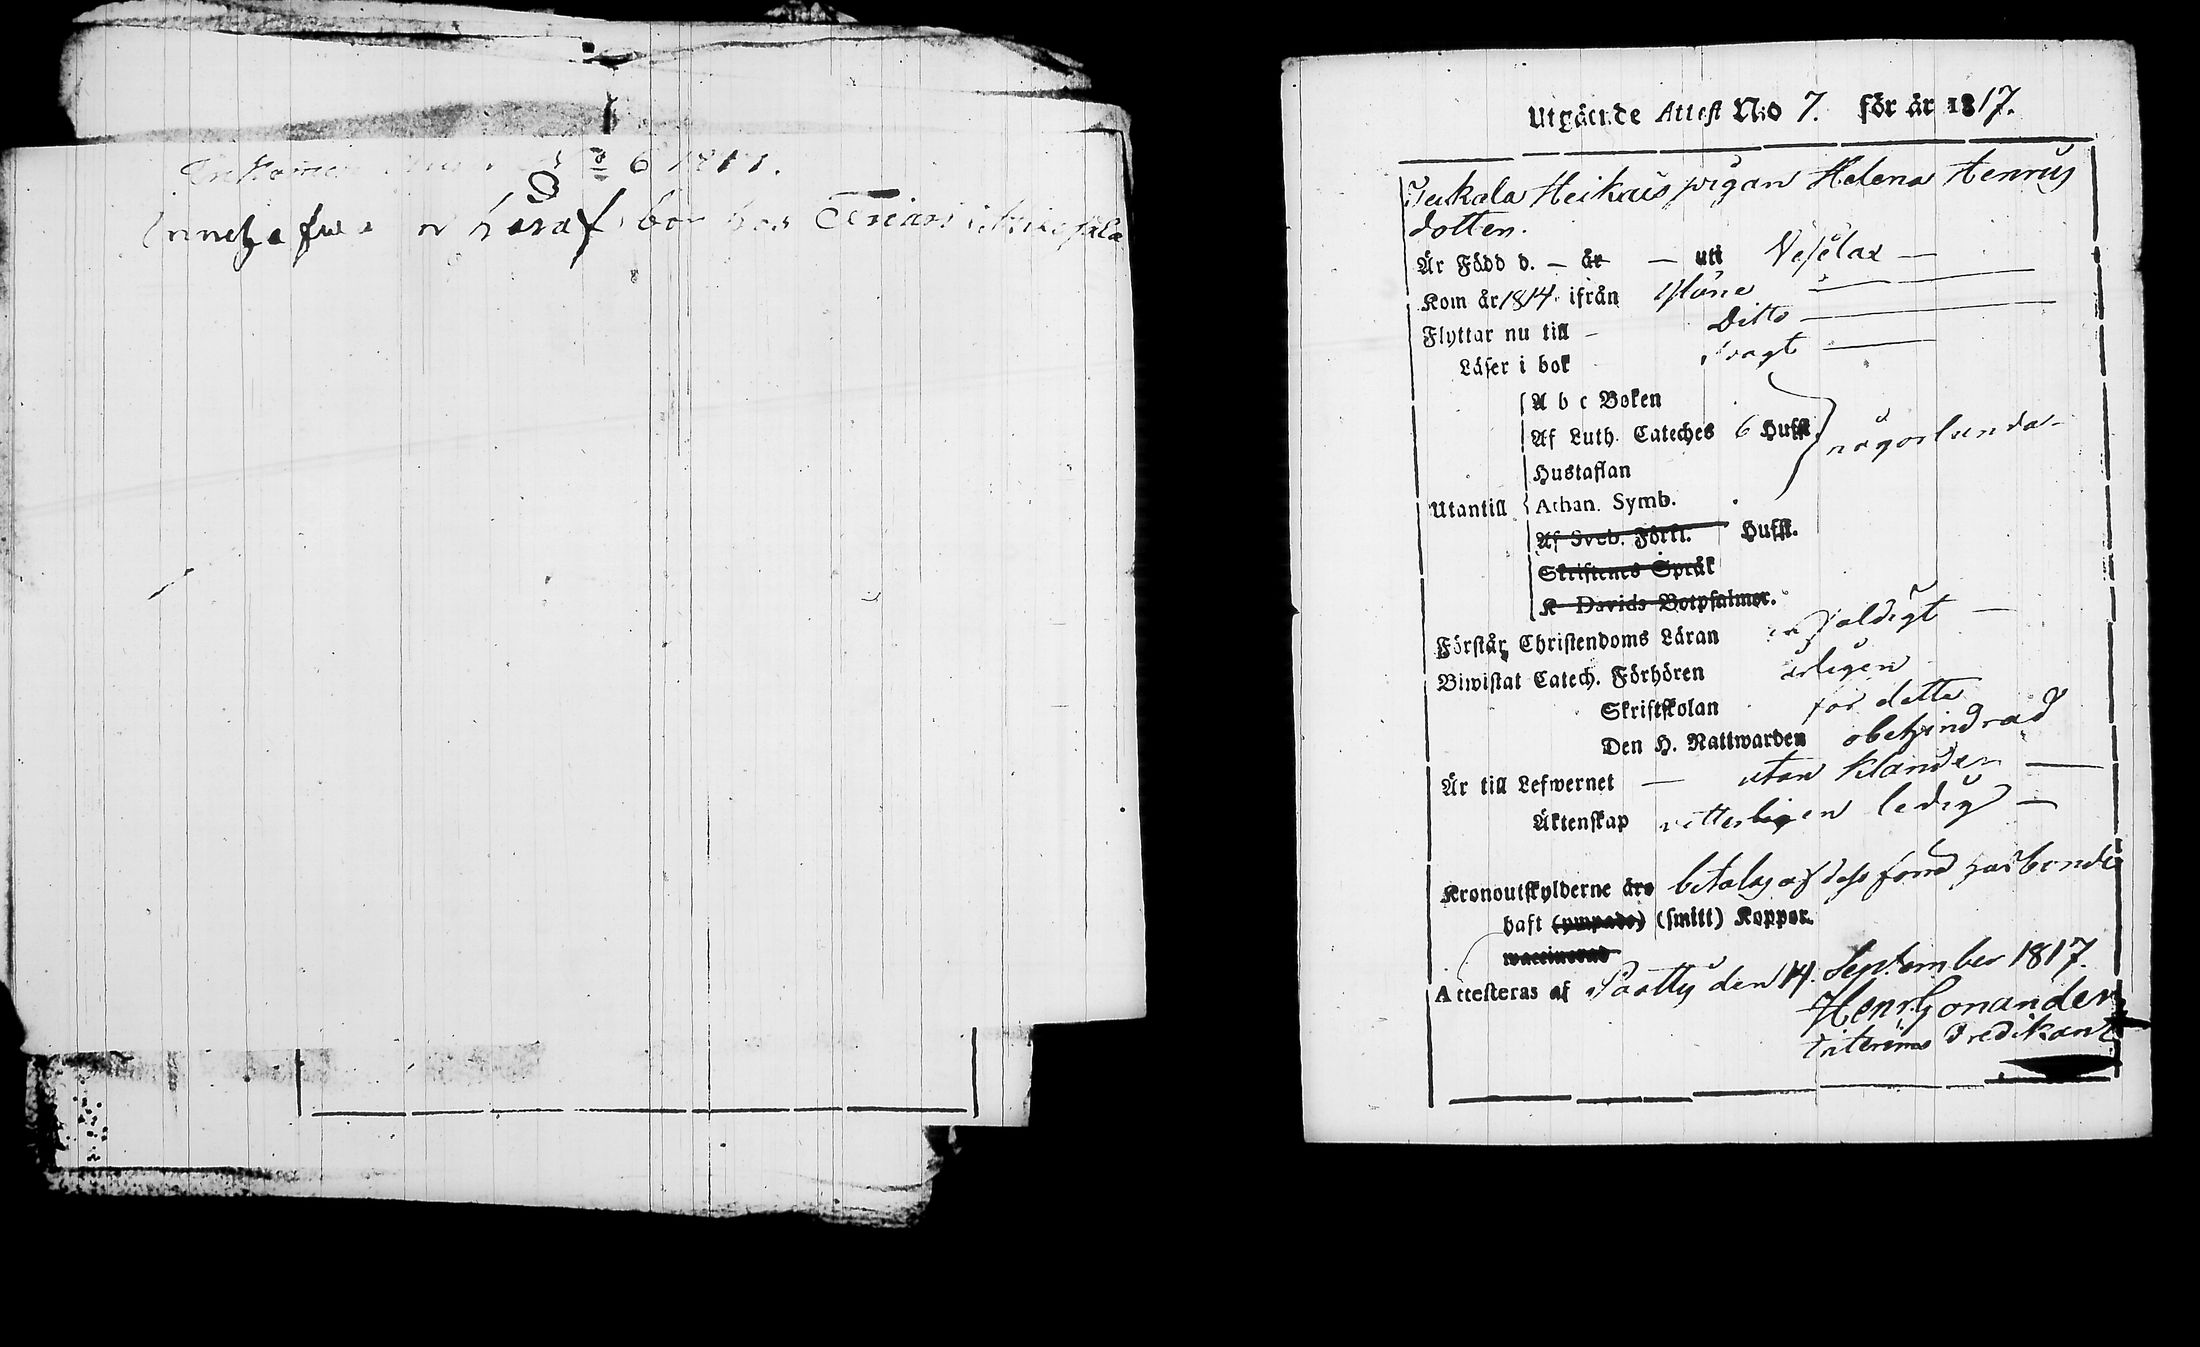 6 1817.
Innehafvaren häraf bor hos
Utgående Attest N:o 7. för år 1817.
Heikas pigan Helena Henrics
dotter.
Är Född d. — år — uti Veselax —
Kom år 1814 ifrån
Flyttar nu till — Ditto —
Läser i bok svagt —
A b c Boken
Af Luth. Cateches 6 Hufst. någorlunda
Hustaflan
Utantill Athan. Symb.
Af Sveb. Förkl. Hufst.
Skriftenes Språk
K Davids Botpsalmer.
Förstår Christendoms Läran enfaldigt —
Biwistat Catech. Förhören årligen
Skriftskolan för detta
Den H. Nattwarden obehindrad
Är till Lefwernet — utan klander —
Äktenskap vetterligen ledig —
Kronoutskylderne äro betalas af dess husbonde
haft (ympade) (smitt) Koppor.
waccinerad
Attesteras af Paattis den 14. September 1817.
Henr. Gonander
Interims Predikant